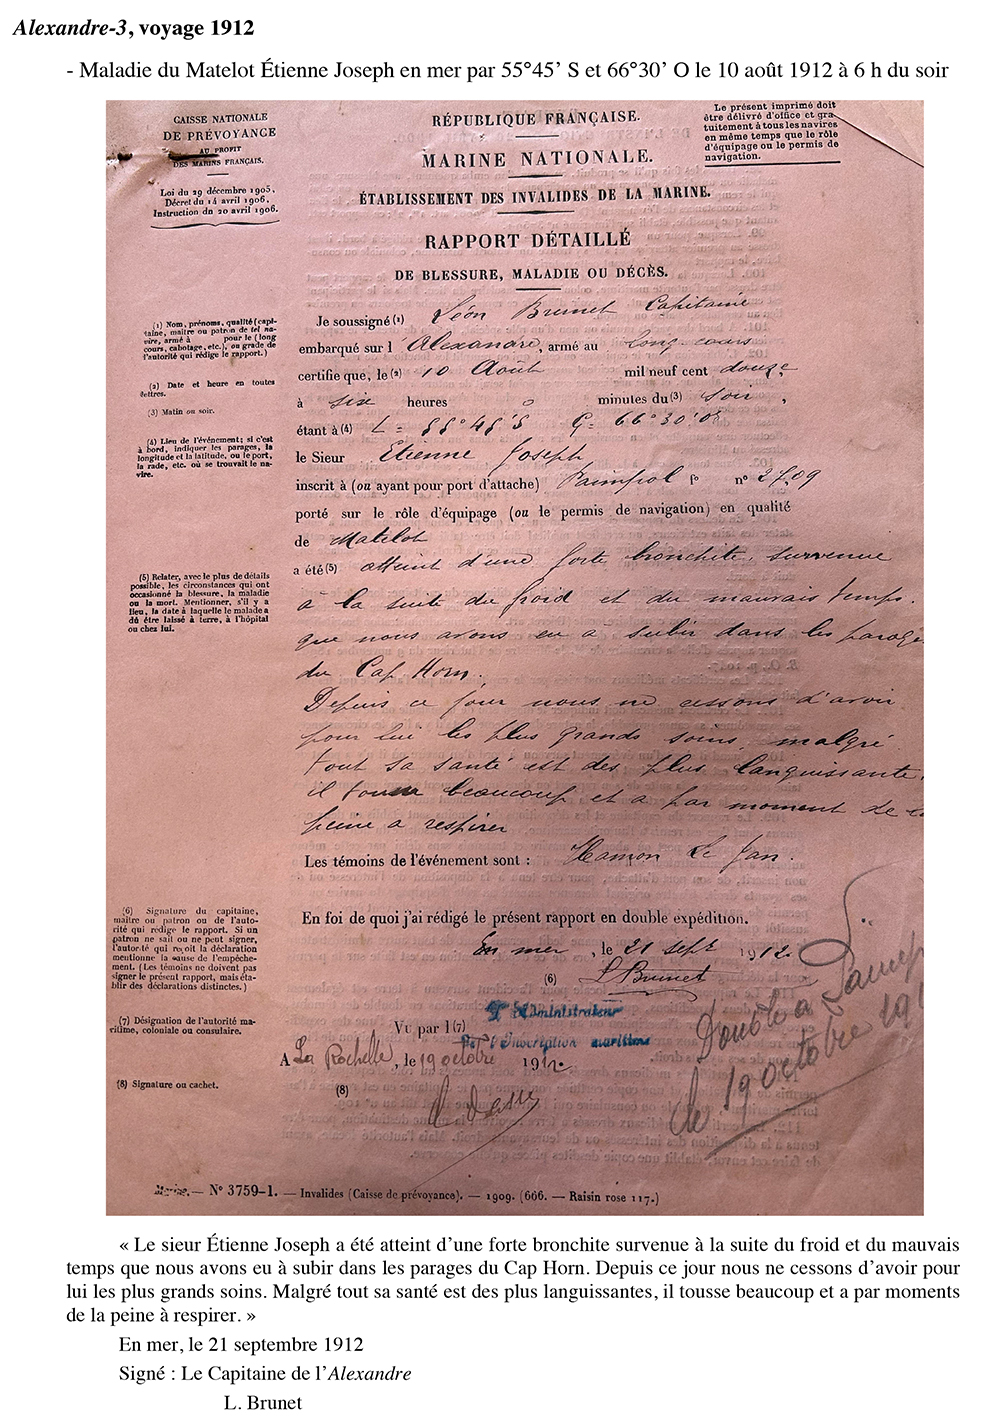 Alexandre-3, voyage 1912
- Maladie du Matelot Étienne Joseph en mer par 55°45’ S et 66°30’ O le 10 août 1912 à 6 h du soir
CAISSE NATIONALE
DE PRÉVOYANCE
AU PROFIT
DES MARINS FRANÇAIS.
Loi du 29 décembre 1905.
Décret du 14 avril 1906.
Instruction du 20 avril 1906.
RÉPUBLIQUE FRANÇAISE.
MARINE NATIONALE.
ÉTABLISSEMENT DES INVALIDES DE LA MARINE.
RAPPORT DÉTAILLÉ
DE BLESSURE, MALADIE OU DÉCÈS.
Le présent imprimé doit
être délivré d'office et gra-
tuitement à tous les navires
en même temps que le rôle
d'équipage ou le permis de
navigation.
(1) Nom, prénoms, qualité (capi-
taine, maître ou patron de tel na-
vire, armé à pour le (long
cours, cabotage, etc.), ou grade de
l'autorité qui rédige le rapport.)
(2) Date et heure en toutes
lettres.
(3) Matin ou soir.
(4) Lieu de l'événement; si c'est
à bord, indiquer les parages, la
longitude et la latitude, ou le port,
la rade, etc. où se trouvait le na-
vire.
(5) Relater, avec le plus de détails
possible, les circonstances qui ont
occasionné la blessure, la maladie
ou la mort. Mentionner, s'il y a
lieu, la date à laquelle le malade a
dû être laissé à terre, à l'hôpital
ou chez lui.
Je soussigné (1) Léon Brunet Capitaine
embarqué sur l'Alexandre, armé au long cours
certifie que, le (2) 10 Août mil neuf cent douze
à six heures 0 minutes du (3) soir,
étant à (4) L = 55°45'S G = 66°30'Or
le Sieur Etienne Joseph
inscrit à (ou ayant pour port d'attache) Paimpol fo n° 2709
porté sur le rôle d'équipage (ou le permis de navigation) en qualité
de Matelot
a été (5) atteint d'une forte bronchite, survenue
à la suite du froid et du mauvais temps.
que nous avons eu a subir dans les parage
du Cap Horn.
Depuis ce jour nous ne cessons d'avoir
pour lui les plus grands soins, malgré
tout sa santé est des plus languissante,
il tousse beaucoup et a par moment de la
peine a respirer
Les témoins de l'événement sont : Hamon Le Jan.
(6) Signature du capitaine,
maître ou patron ou de l'auto-
rité qui rédige le rapport. Si un
patron ne sait ou ne peut signer,
l'autorité qui reçoit la déclaration
mentionne la cause de l'empêche-
ment. (Les témoins ne doivent pas
signer le présent rapport, mais éta-
blir des déclarations distinctes.)
(7) Désignation de l'autorité ma-
ritime, coloniale ou consulaire.
(8) Signature ou cachet.
En foi de quoi j'ai rédigé le présent rapport en double expédition.
En mer, le 21 sept 1912.
(6) L Brunet
Vu par l (7) L'Administrateur
de l'Inscription maritime
A La Rochelle, le 19 octobre 1912.
(8)
Double a Paimp
le 19 octobre 191
Marine. — N° 3759-1. — Invalides (Caisse de prévoyance). — 1909. (666. — Raisin rose 117.)
« Le sieur Étienne Joseph a été atteint d’une forte bronchite survenue à la suite du froid et du mauvais
temps que nous avons eu à subir dans les parages du Cap Horn. Depuis ce jour nous ne cessons d’avoir pour
lui les plus grands soins. Malgré tout sa santé est des plus languissantes, il tousse beaucoup et a par moments
de la peine à respirer. »
En mer, le 21 septembre 1912
Signé : Le Capitaine de l’Alexandre
L. Brunet